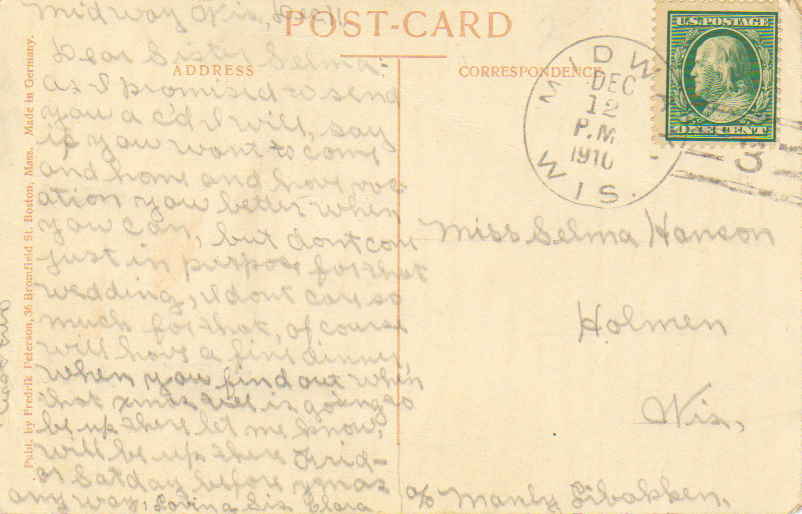 Midway Wis, Dec 11.
POST-CARD
Dear Sister Selma:-
ADDRESS
CORRESPONDENCE
as I promised to send
you a c'd I will, say
if you want to come
and home and have vac
ation you better when
you can, but dont come
just in purpose for that
wedding, I dont care so
much for that, of course
will have a fine dinner,
when you find out when
that xmas is going to
be up there let me know,
will be up there Frid-
or Satday before xmas
anyway, Loving Sis Clara
U.S. POSTAGE
ONE CENT
MIDWAY
DEC
12
P.M
1910
WIS.
3
Miss Selma Hanson
Holmen
Wis,
c/o Manly Sibakken,
Publ. by Fredrik Peterson, 36 Bromfield St. Boston, Mass. Made in Germany.